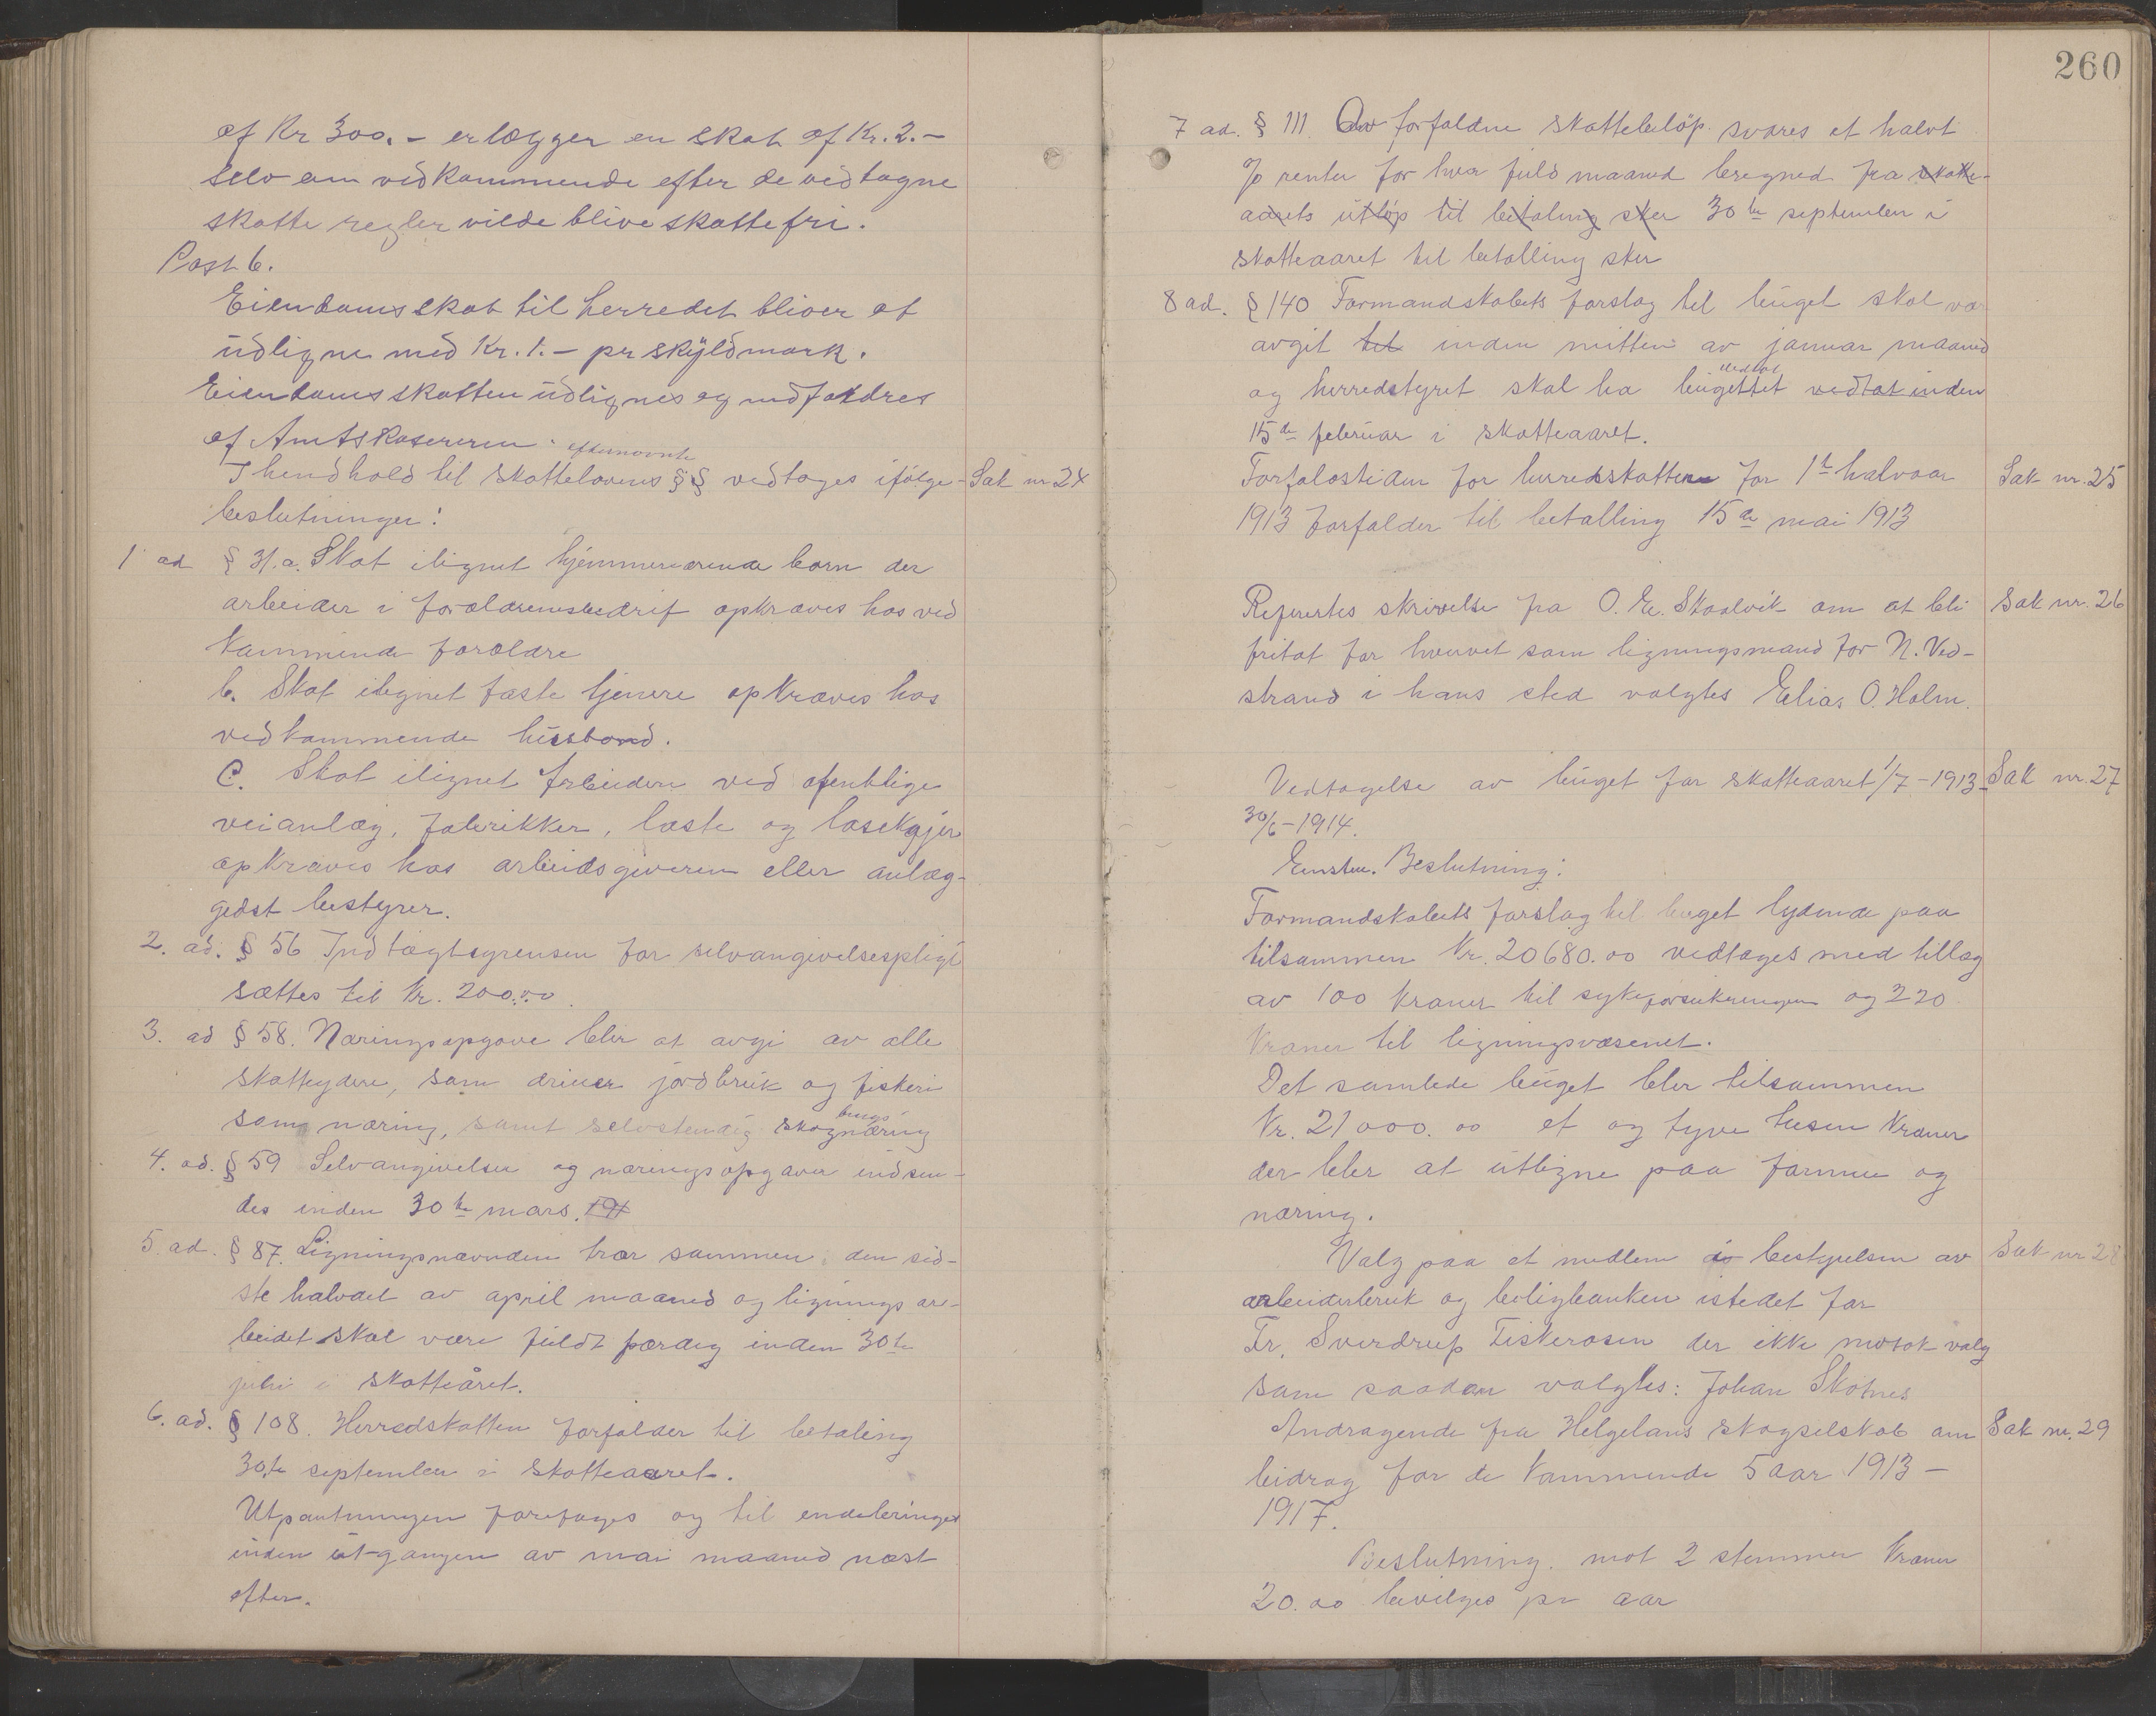 af Kr 300.- erlægger en skat af Kr. 2.-
selv om vedkommende efter de vedtagne
skatte regler vilde blive skattefri.
Post 6.
Eiendomsskat til herredet bliver at
üdligne med Kr. 1.- pr skÿldmark.
Eiendomsskatten üdlignes og indfordres
af Amtskasereren.
efternævnte
I hendhold til skattelovens §§ vedtages ifølge- Sak nr 24
beslutninger:
1 ad § 31.a. Skat ilignet hjemmeværende born der
arbeider i forældrenesbedrif opkræves hos ved
kommende forældre
b. Skat ilignet faste tjenere opkræves hos
vedkommende hüsbond.
C. Skat ilignet Arbeidere ved ofentlige
veianlæg, fabrikker, laste og losekgjer
opkræves hos arbeidsgiveren eller anlæg-
gedst bestyrer.
2. ad. § 56 Indtægtsgrensen for selvangivelsespligt
sættes til kr. 200.00.
3. ad § 58. Næringsopgave blir at avgi av alle
skatteydere, som driver jordbrük og fiskeri
brugs
som næring, samt selvstendig skognæring
4. ad. § 59 Selvangivelser og næringsopgaver indsen-
des inden 30te mars. 191
5. ad. § 87. Ligningsnævnden trær sammen den sid-
ste halvdel av april maaned og lignings ar-
beidet skal være füldt færdig inden 30te
juli i skatteåret.
6. ad. § 108. Herredskatten forfalder til betaling
30te september i skatteaaret.
Utpantningen foretages og til endebringes
inden üt-gangen av mai maaned næst
efter.
260
7 ad. § 111. Av forfaldne skattebeløp svares et halvt
% renter for hver füld maaned beregned fra skatte-
aarets ütløp til betaling sker 30te september i
skatteaaret til betalling sker
8 ad. § 140 Formandskabets forslag til büget skal være
avgit til inden mitten av januar maaned
vedtat
og herredstyret skal ha bügettet vedtat inden
15de februar i skatteaaret.
Forfaldstiden for herredskatten for 1te halvaar Sak nr. 25
1913 forfalder til betalling 15de mai 1913
Refertes skrivelse fra O. E. Skaalvik om at bli Sak nr. 26
fritat for hvervet som ligningsmand for N. Ved-
strand i hans sted valgtes Elias O. Holm.
Vedtagelse av büget for skatteaaret 1/7-1913- Sak nr. 27
30/6-1914.
Enstem. Beslutning:
Formandskabets forslag til büget lydende paa
tilsammen Kr. 20680.00 vedtages med tillæg
av 100 kroner til sykeforsikringen og 220
kroner til ligningsvæsenet.
Det samlede büget blir tilsammen
Kr. 21000.00 et og tyve tusen kroner
der blir at ütligne paa formue og
næring.
Valg paa et medlem i bestyrelsen av Sak nr 28
arbeiderbruk og boligbanken istedet for
Fr. Sverdrup Fiskerosen der ikke motok valg
som saadan valgtes: Johan Skotnes
Andragende fra Helgelans skogselskab om Sak nr. 29
bidrag for de kommende 5 aar 1913-
1917.
Beslutning. mot 2 stemmer kroner
20.00 bevilges pr aar